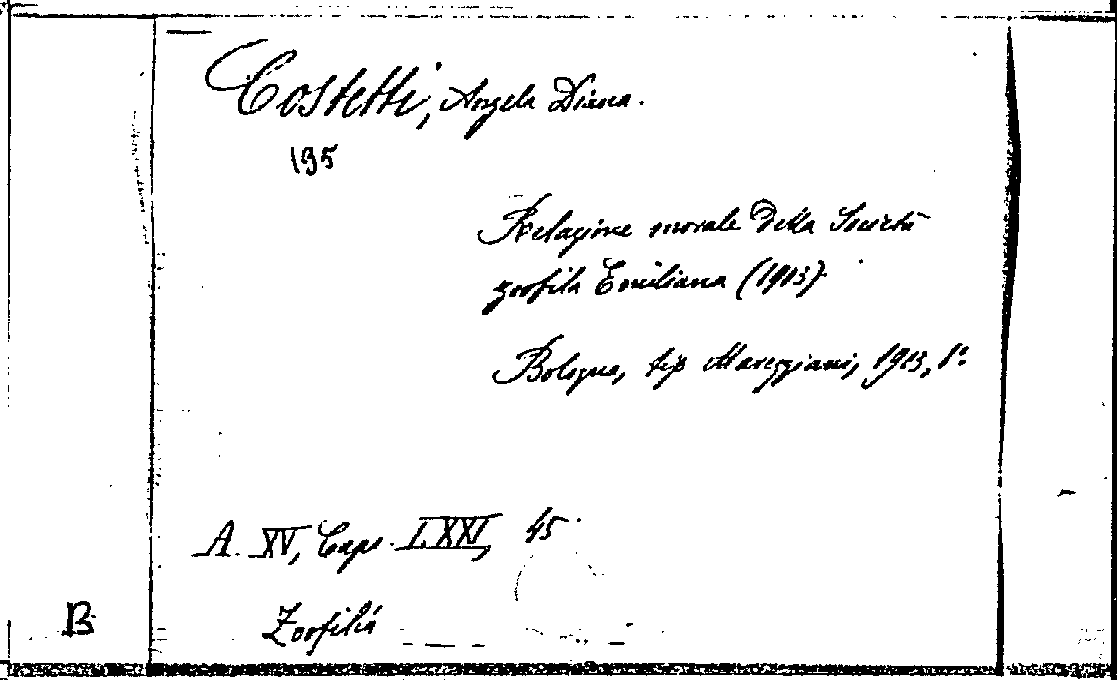 Costetti, Angela Diana.
195
Relazione morale della Società
zoofila Emiliana (1913)
Bologna, tip Mareggiani, 1913, 8°.
A. XV, Caps. LXXI, 45
B
Zoofilia